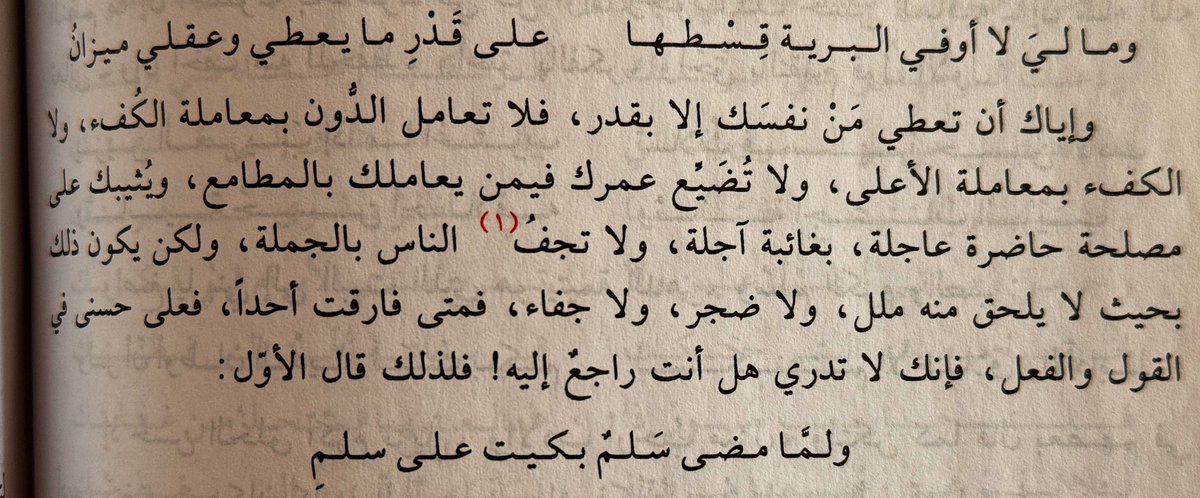 وما ليَ لا أوفي البرية قِسْطها على قَدْرِ ما يعطي وعقلي ميزانُ
وإياك أن تعطي مَنْ نفسَك إلا بقدر، فلا تعامل الدُّون بمعاملة الكُفء، ولا
الكفء بمعاملة الأعلى، ولا تُضَيِّع عمرك فيمن يعاملك بالمطامع، ويُثيبك على
مصلحة حاضرة عاجلة، بغائبة آجلة، ولا تجفُ(١) الناس بالجملة، ولكن يكون ذلك
بحيث لا يلحق منه ملل، ولا ضجر، ولا جفاء، فمتى فارقت أحداً، فعلى حسنى في
القول والفعل، فإنك لا تدري هل أنت راجعٌ إليه! فلذلك قال الأوّل:
ولمَّا مضى سَلمٌ بكيت على سلمِ